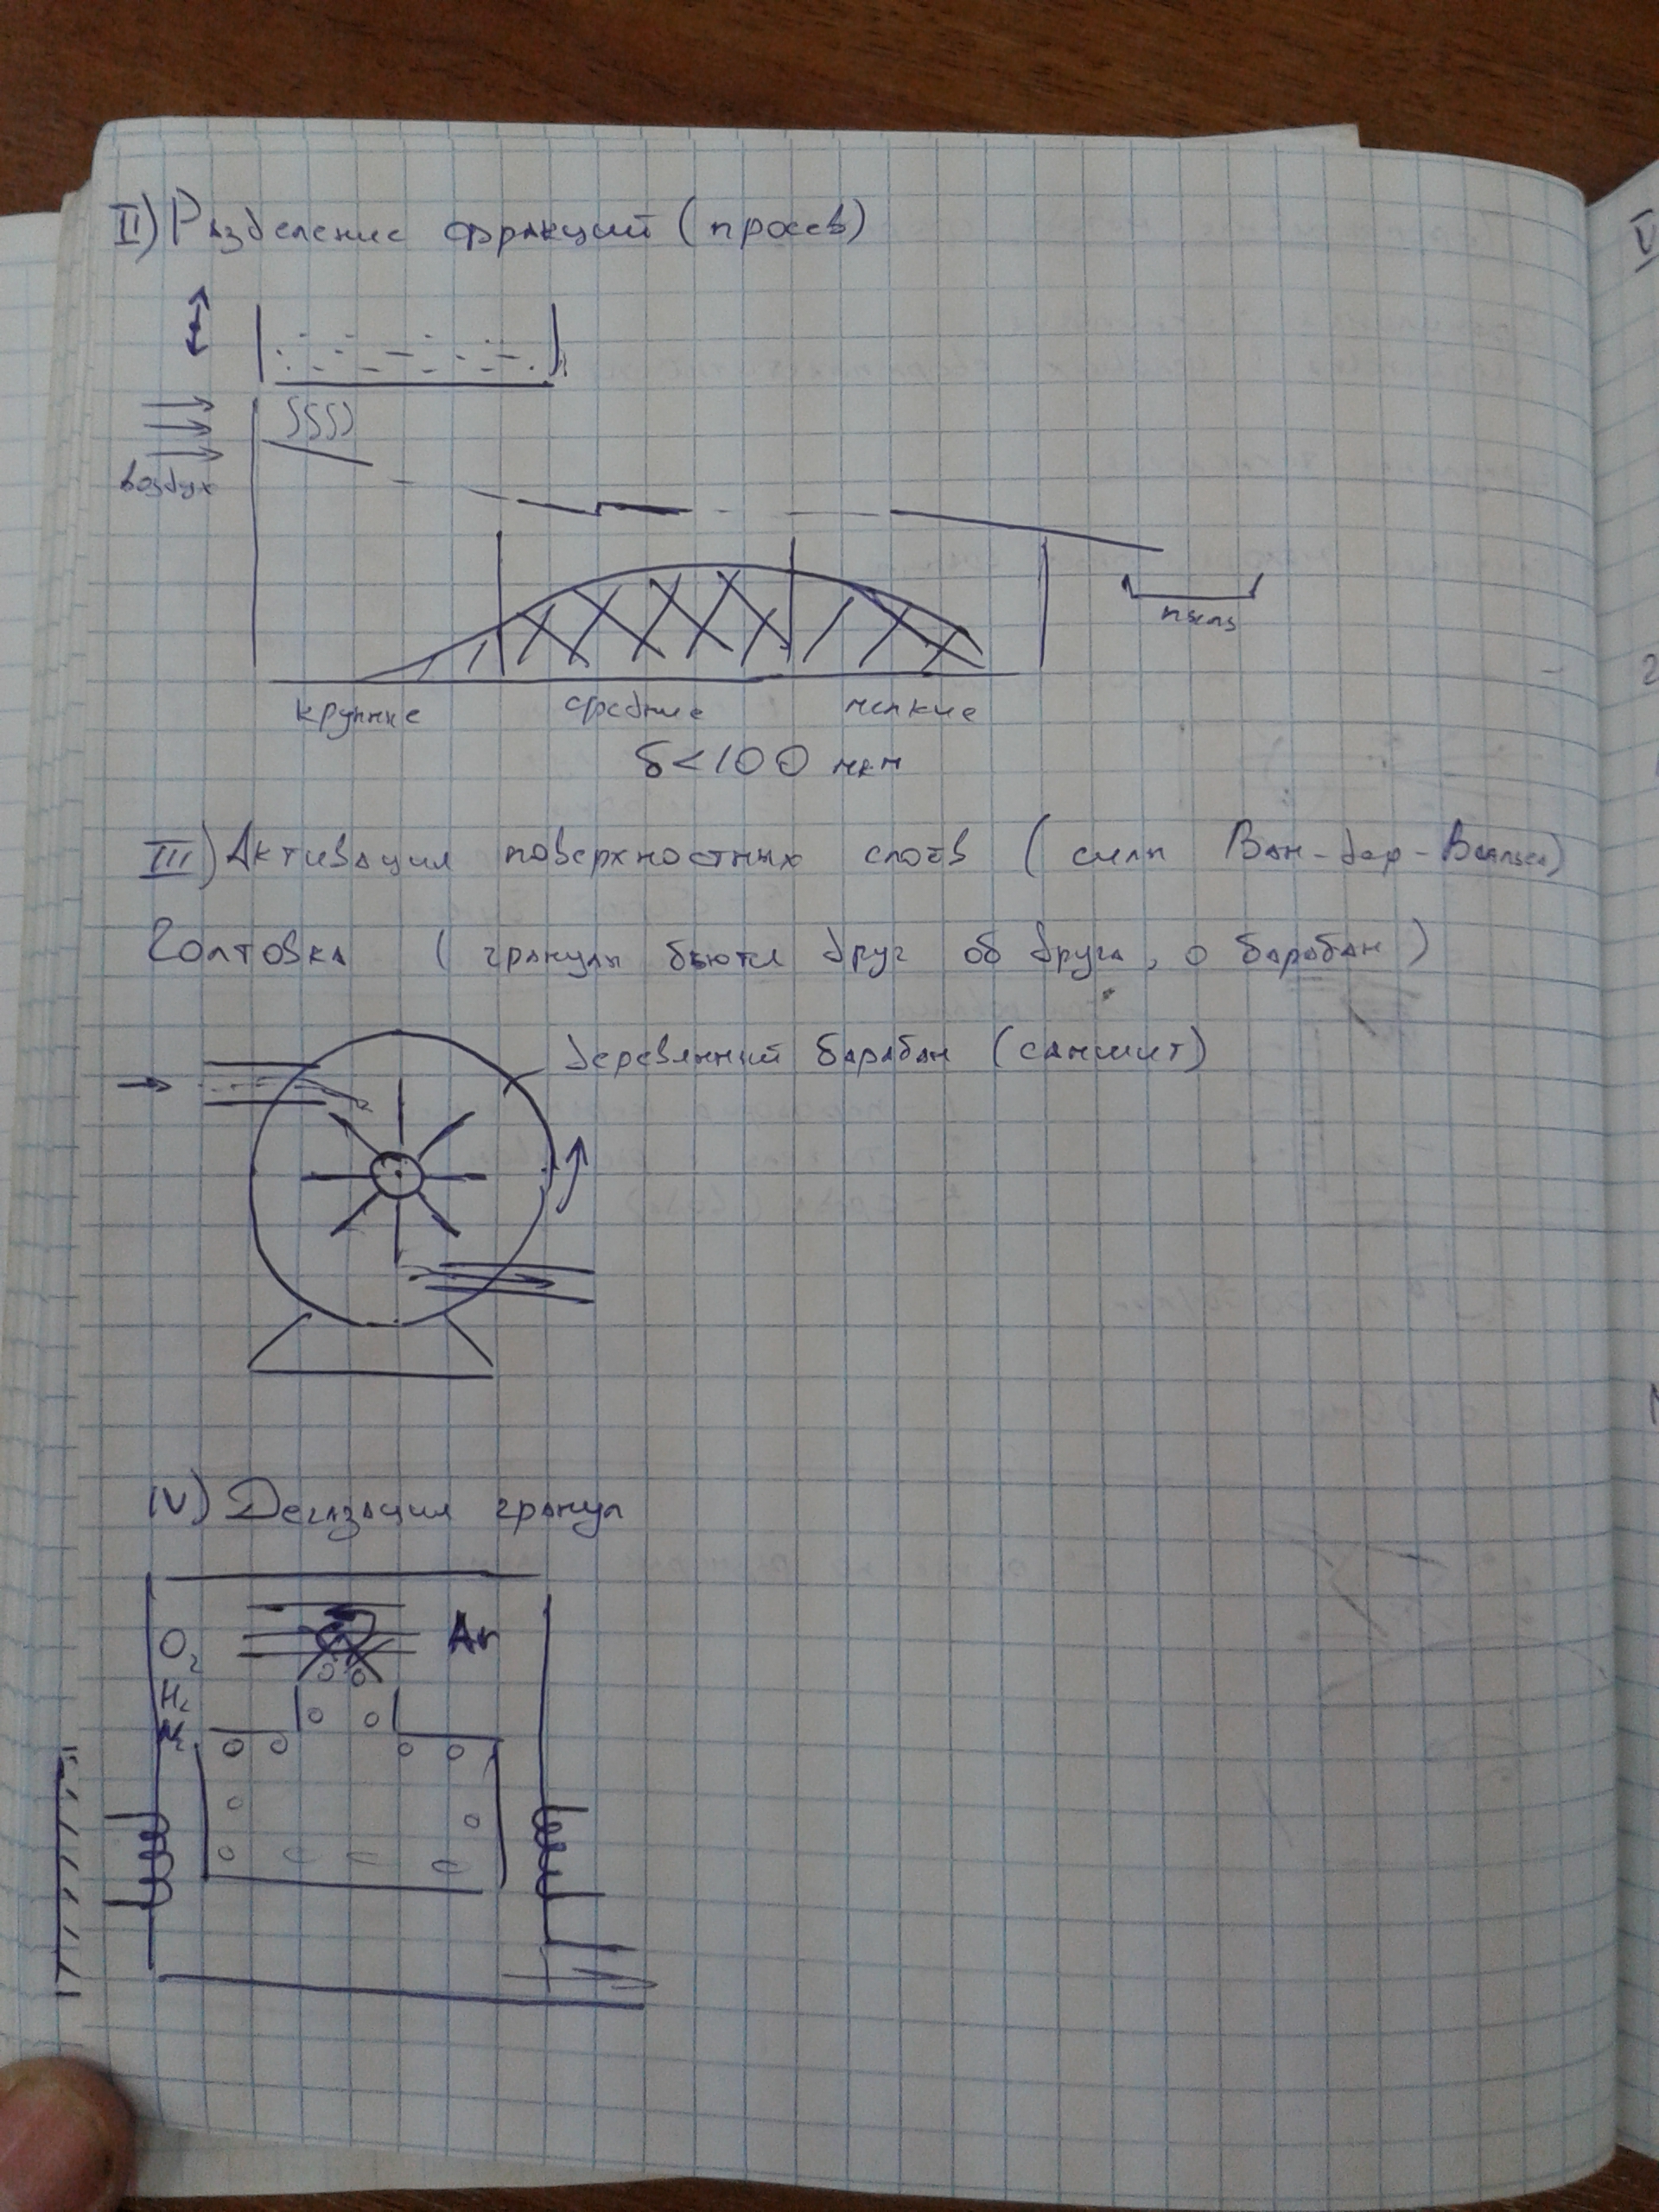 II) Разделение фракций (просев)
воздух
пыль
крупные средние мелкие
δ<100 мкм
III) Активация поверхностных слоёв (силы Ван-дер-Ваальса)
Голтовка (гранулы бьются друг об друга, о барабан)
деревянный барабан (самшит)
IV) Дегазация гранул
O₂ Ar
H₂
N₂